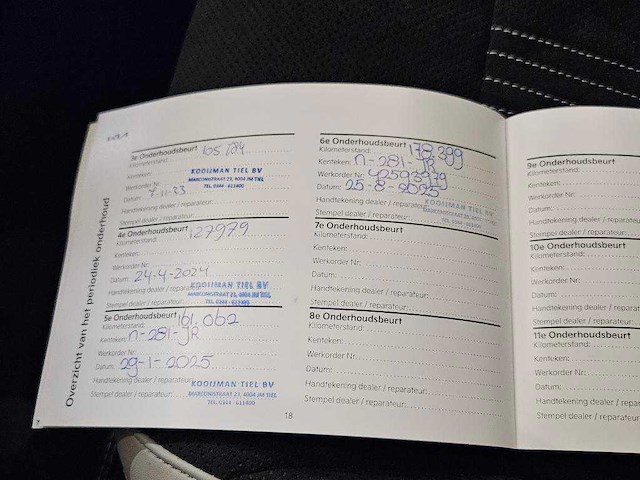 Overzicht van het periodiek onderhoud
3e Onderhoudsbeurt
Kilometerstand: 105.784
Kenteken:
Werkorder Nr:
Datum: 7-11-23
Handtekening dealer / reparateur:
Stempel dealer / reparateur:
KOOIJMAN TIEL BV
MARCONISTRAAT 23, 4004 JM TIEL
TEL. 0344 - 611400
4e Onderhoudsbeurt
Kilometerstand: 127979
Kenteken:
Werkorder Nr:
Datum: 24-4-2024
Handtekening dealer / reparateur:
Stempel dealer / reparateur:
KOOIJMAN TIEL BV
MARCONISTRAAT 23, 4004 JM TIEL
TEL. 0344 - 611400
5e Onderhoudsbeurt
Kilometerstand: 161.062
Kenteken: n-281-JR
Werkorder Nr:
Datum: 29-1-2025
Handtekening dealer / reparateur:
Stempel dealer / reparateur:
KOOIJMAN TIEL BV
MARCONISTRAAT 23, 4004 JM TIEL
TEL. 0344 - 611400
18
6e Onderhoudsbeurt
Kilometerstand: 178.399
Kenteken: n-281-JR
Werkorder Nr:
Datum: 25-8-2025
Handtekening dealer / reparateur:
Stempel dealer / reparateur:
KOOIJMAN TIEL BV
MARCONISTRAAT 23, 4004 JM TIEL
TEL. 0344 - 611400
7e Onderhoudsbeurt
Kilometerstand:
Kenteken:
Werkorder Nr:
Datum:
Handtekening dealer / reparateur:
Stempel dealer / reparateur:
8e Onderhoudsbeurt
Kilometerstand:
Kenteken:
Werkorder Nr:
Datum:
Handtekening dealer / reparateur:
Stempel dealer / reparateur:
9e Onderhoudsbeurt
Kilometerstand:
Kenteken:
Werkorder Nr:
Datum:
Handtekening dealer / reparateur
Stempel dealer / reparateur
10e Onderhoudsbeurt
Kilometerstand:
Kenteken:
Werkorder Nr:
Datum:
Handtekening dealer / repara
Stempel dealer / reparateur
11e Onderhoudsbeurt
Kilometerstand:
Kenteken:
Werkorder Nr:
Datum:
Handtekening dealer / repara
Stempel dealer / reparateur